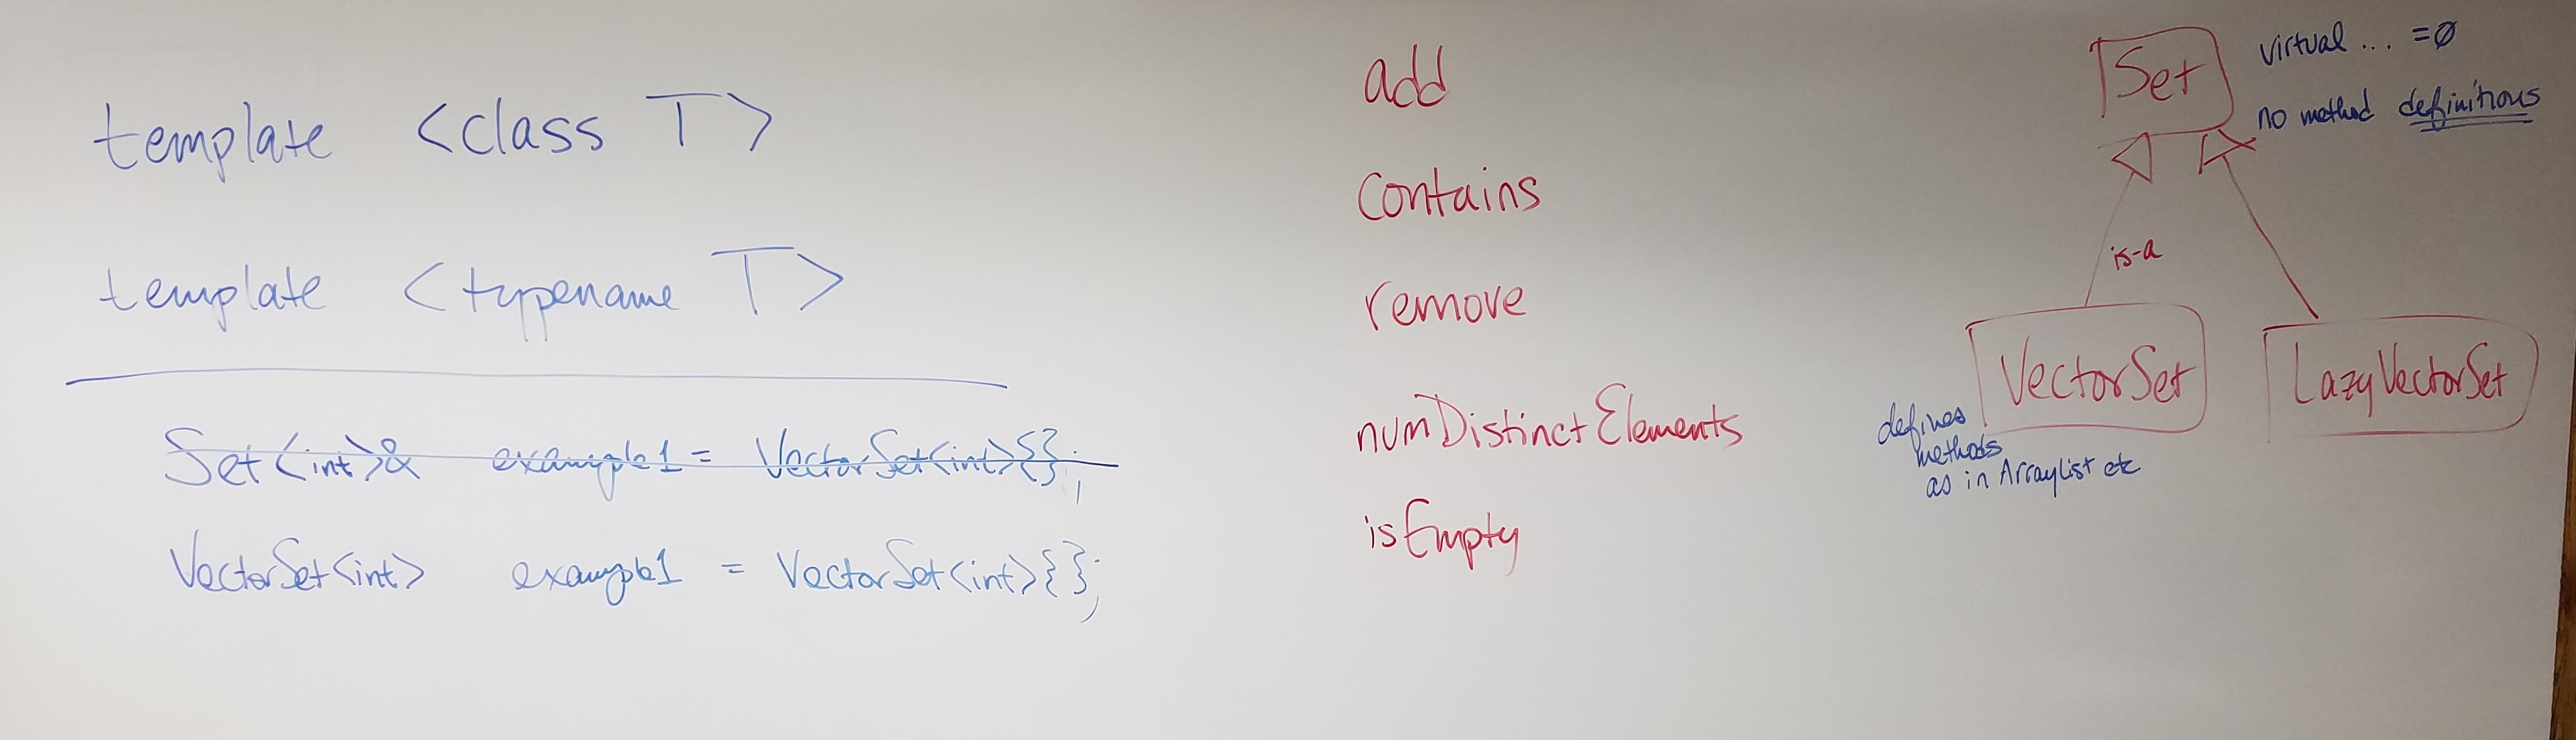 template <class T>
template <typename T>
Set<int>& example1 = VectorSet<int>{};
VectorSet<int> example1 = VectorSet<int>{};
add
contains
remove
numDistinctElements
isEmpty
Set
virtual ... =0
no method definitions
is-a
VectorSet
LazyVectorSet
defines
methods
as in ArrayList etc